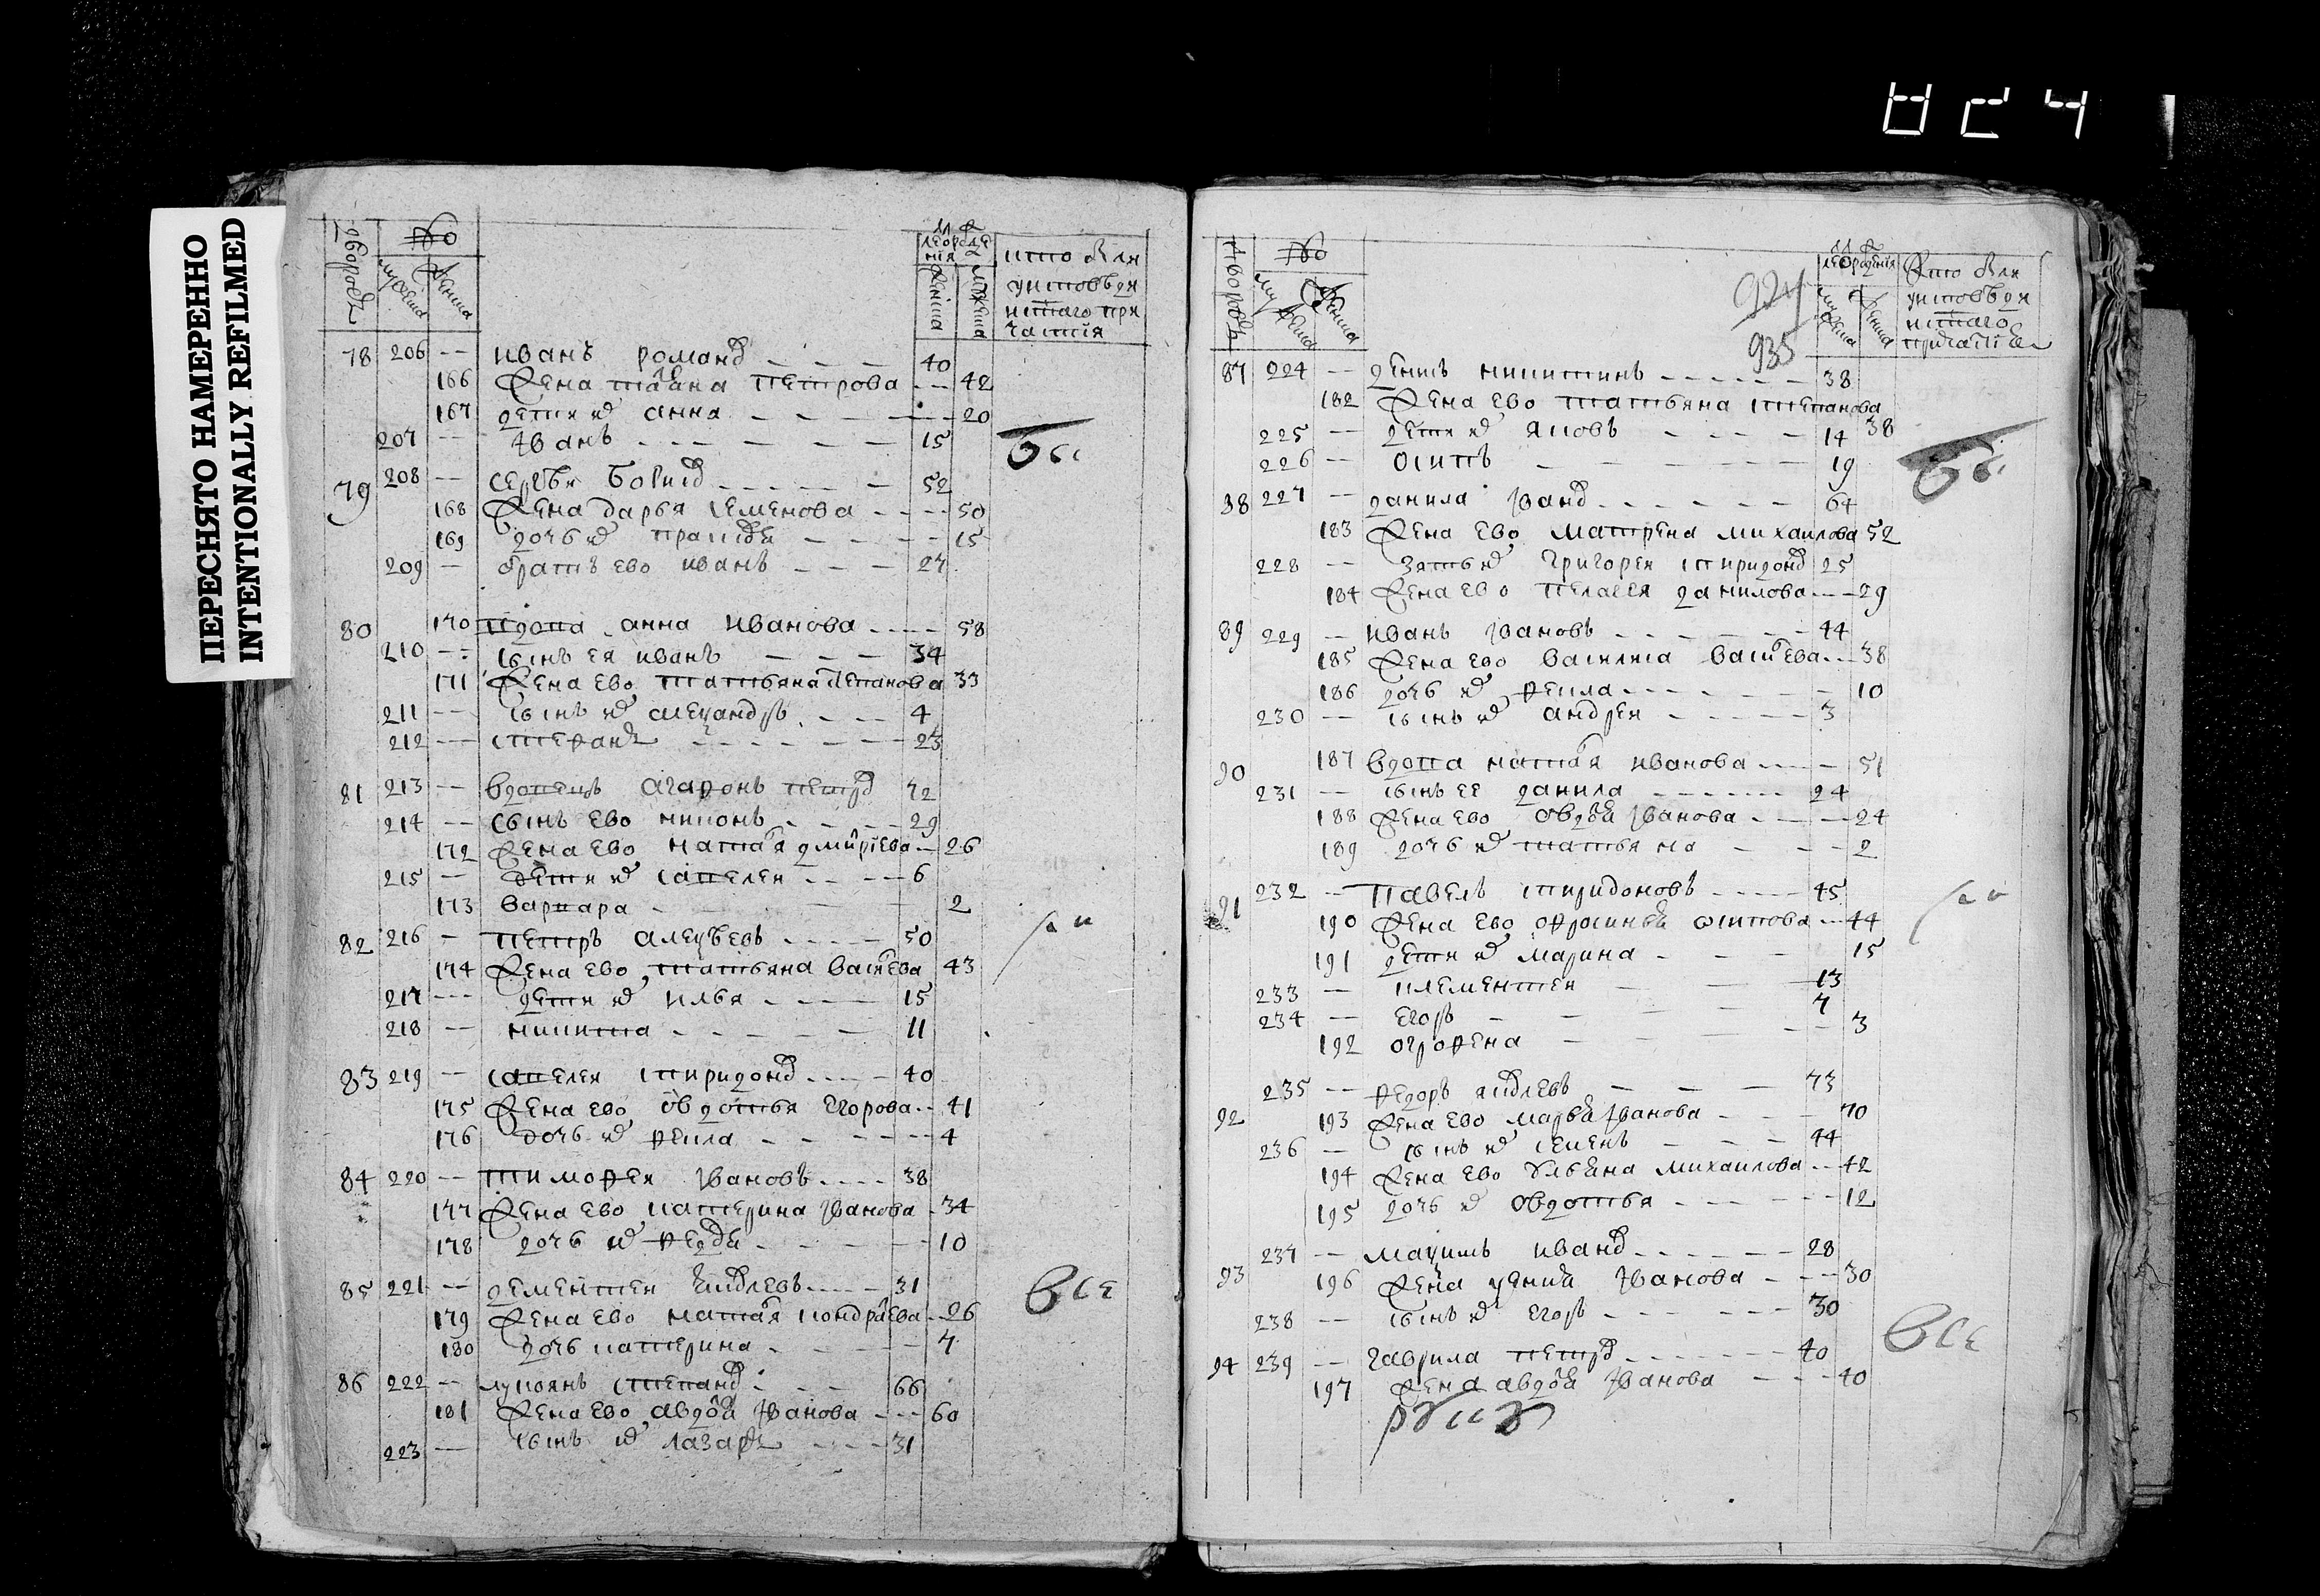 824
ПЕРЕСНЯТО НАМЕРЕННО
INTENTIONALLY REFILMED
№
что были
у исповѣди
78 206 -- иванъ романов 40
166 жена татіана петрова -- 42
167 дети ево анна 20
207 -- Иванъ 15
79 208 -- сергѣи 52
168 жена дарья семенова 50
169 дочь ево прасков 15
209 -- братъ ево иванъ 27
80 170 вдова анна иванова 58
210 -- сынъ ея иванъ 34
171 жена ево татьяна степанова 33
211 -- сынъ ево алеѯандръ 4
212 -- степанъ 23
81 213 -- вдовецъ агафонъ петров 72
214 -- сынъ ево никонъ 29
172 жена ево наталя дмитріева 26
215 -- дети ево савелеи 6
173 варвара 2
82 216 -- петръ алеѯѣевъ 50
174 жена ево татьяна васильева 43
217 -- дети ево илья 15
218 -- никита 11
83 219 -- савелеи спиридонов 40
175 жена ево овдотья егорова 41
176 дочь ево фекла 4
84 220 -- тимофеи Ивановъ 38
177 жена ево катерина Иванова 34
178 дочь ево федо 10
85 221 -- дементеи яковлевъ 31
179 жена ево наталя кондратева 26
180 дочь катерина 7
86 222 -- лукоянъ степанов 66
181 жена ево авдотя Иванова 60
223 -- сынъ ево лазарь 31
все
№
что были
у исповѣди
924
935
87 224 -- денисъ никитинъ 38
182 жена ево татьяна степанова 38
225 -- дети ево яковъ 14
226 -- осипъ 19
88 227 -- данила Иванов 64
183 жена ево матрена михаилова 52
228 -- зять ево григореи спиридонов 25
184 жена ево пелагея данилова 29
89 229 -- иванъ Ивановъ 44
185 жена ево василиса васильева 38
186 дочь ево фекла 10
230 -- сынъ ево андреи 3
90 187 вдова наталя иванова 51
231 -- сынъ ее данила 24
188 жена ево овдотя Иванова 24
189 дочь ево татьяна 2
91 232 -- павелъ спиридоновъ 45
190 жена ево офросиня осипова 44
191 дети ево марина 15
233 -- клементеи 13
234 -- егоръ 7
192 огрофена 3
235 -- федоръ яковлевъ 73
92 193 жена ево марья Иванова 70
236 -- сынъ ево семенъ 44
194 жена ево ульяна михаилова 42
195 дочь ево овдотья 12
237 -- маѯимъ иванов 28
93 196 жена ѯения Иванова 30
238 -- сынъ ево егоръ 30
94 239 -- гаврила петров 40
197 жена авдотя Иванова 40
все
руку